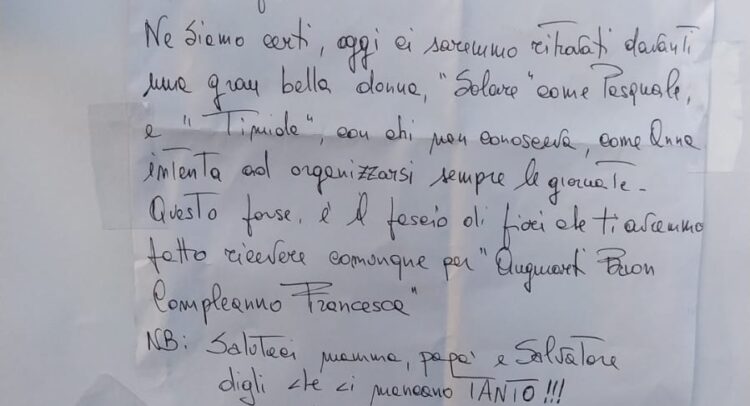 Ne siamo certi, oggi ci saremmo ritrovati davanti
una gran bella donna, "Solare" come Pasquale,
e "Timida", con chi non conosceva, come Anna
intenta ad organizzarsi sempre le giornate.
Questo forse, è il fascio di fiori che ti avremmo
fatto ricevere comunque per "Augurarti Buon
Compleanno Francesca"
NB: Salutaci mamma, papà e Salvatore
digli che ci mancano TANTO!!!